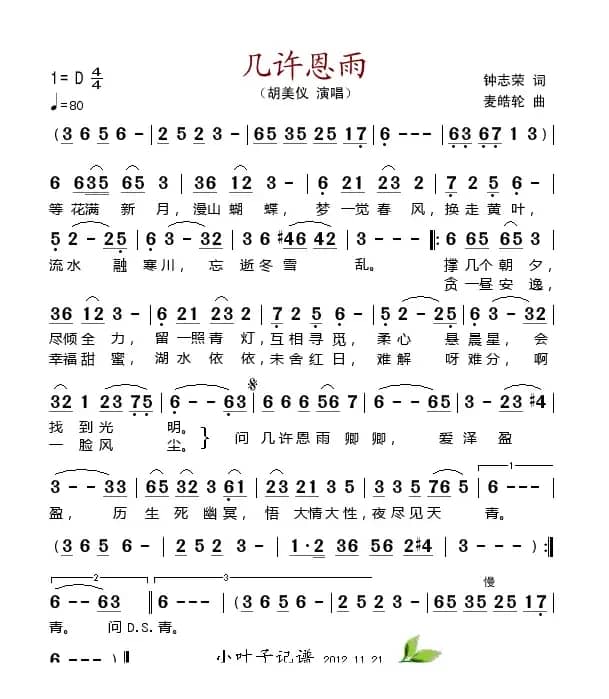 几许恩雨
1= D 4/4
钟志荣 词
♩=80
(胡美仪 演唱)
麦皓轮 曲
(3 6 5 6 - | 2 5 2 3 - | 65 35 25 17 | 6 - - - | 63 67 1 3)
6 635 65 3 | 36 12 3 - | 6 21 23 2 | 7 2 5 - |
等花满 新 月, 漫山 蝴 蝶, 梦 一觉 春 风, 换走 黄叶,
5 2 - 25 | 6 3 - 32 | 3 #46 42 | 3 - - - |: 6 65 65 3 |
流水 融 寒川, 忘 逝冬 雪 乱。 撑 几个 朝 夕,
贪 一昼 安 逸,
36 12 3 - | 6 21 23 - | 7 2 5 6 | 5 2 - 25 | 6 3 - 56 |
尽倾 全 力, 留 一照 青 灯, 互相 寻 觅, 柔心 悬 晨星, 会
幸福 甜 蜜, 湖 水 依 依, 未舍 红 日, 难解 呀 难分, 啊
32 1 23 75 | 6 - - - | 6 - - 63 | 6 6 6 56 7 | 6 65 - 23 | 2 23 #4 |
找 到 光 明。 问 几许 恩 雨 卿 卿, 爱 泽 盈
一 脸 风 尘。
3 - - 33 | 65 32 3 61 | 23 21 3 5 | 3 23 5 765 | 6 - - - |
盈, 历 生 死 幽冥, 悟 大情 大性, 夜尽见天 青。
(3 6 5 6 - | 2 5 2 3 - | 1·2 36 56 2#4 | 3 - - - ) :||
6 - - 63 || 6 - - - | 6 - - - | 6 3 - - | 65 35 25 17 |
青。 问D.S.青。
慢
6 - - - ||
小叶子记谱 2012.11.21